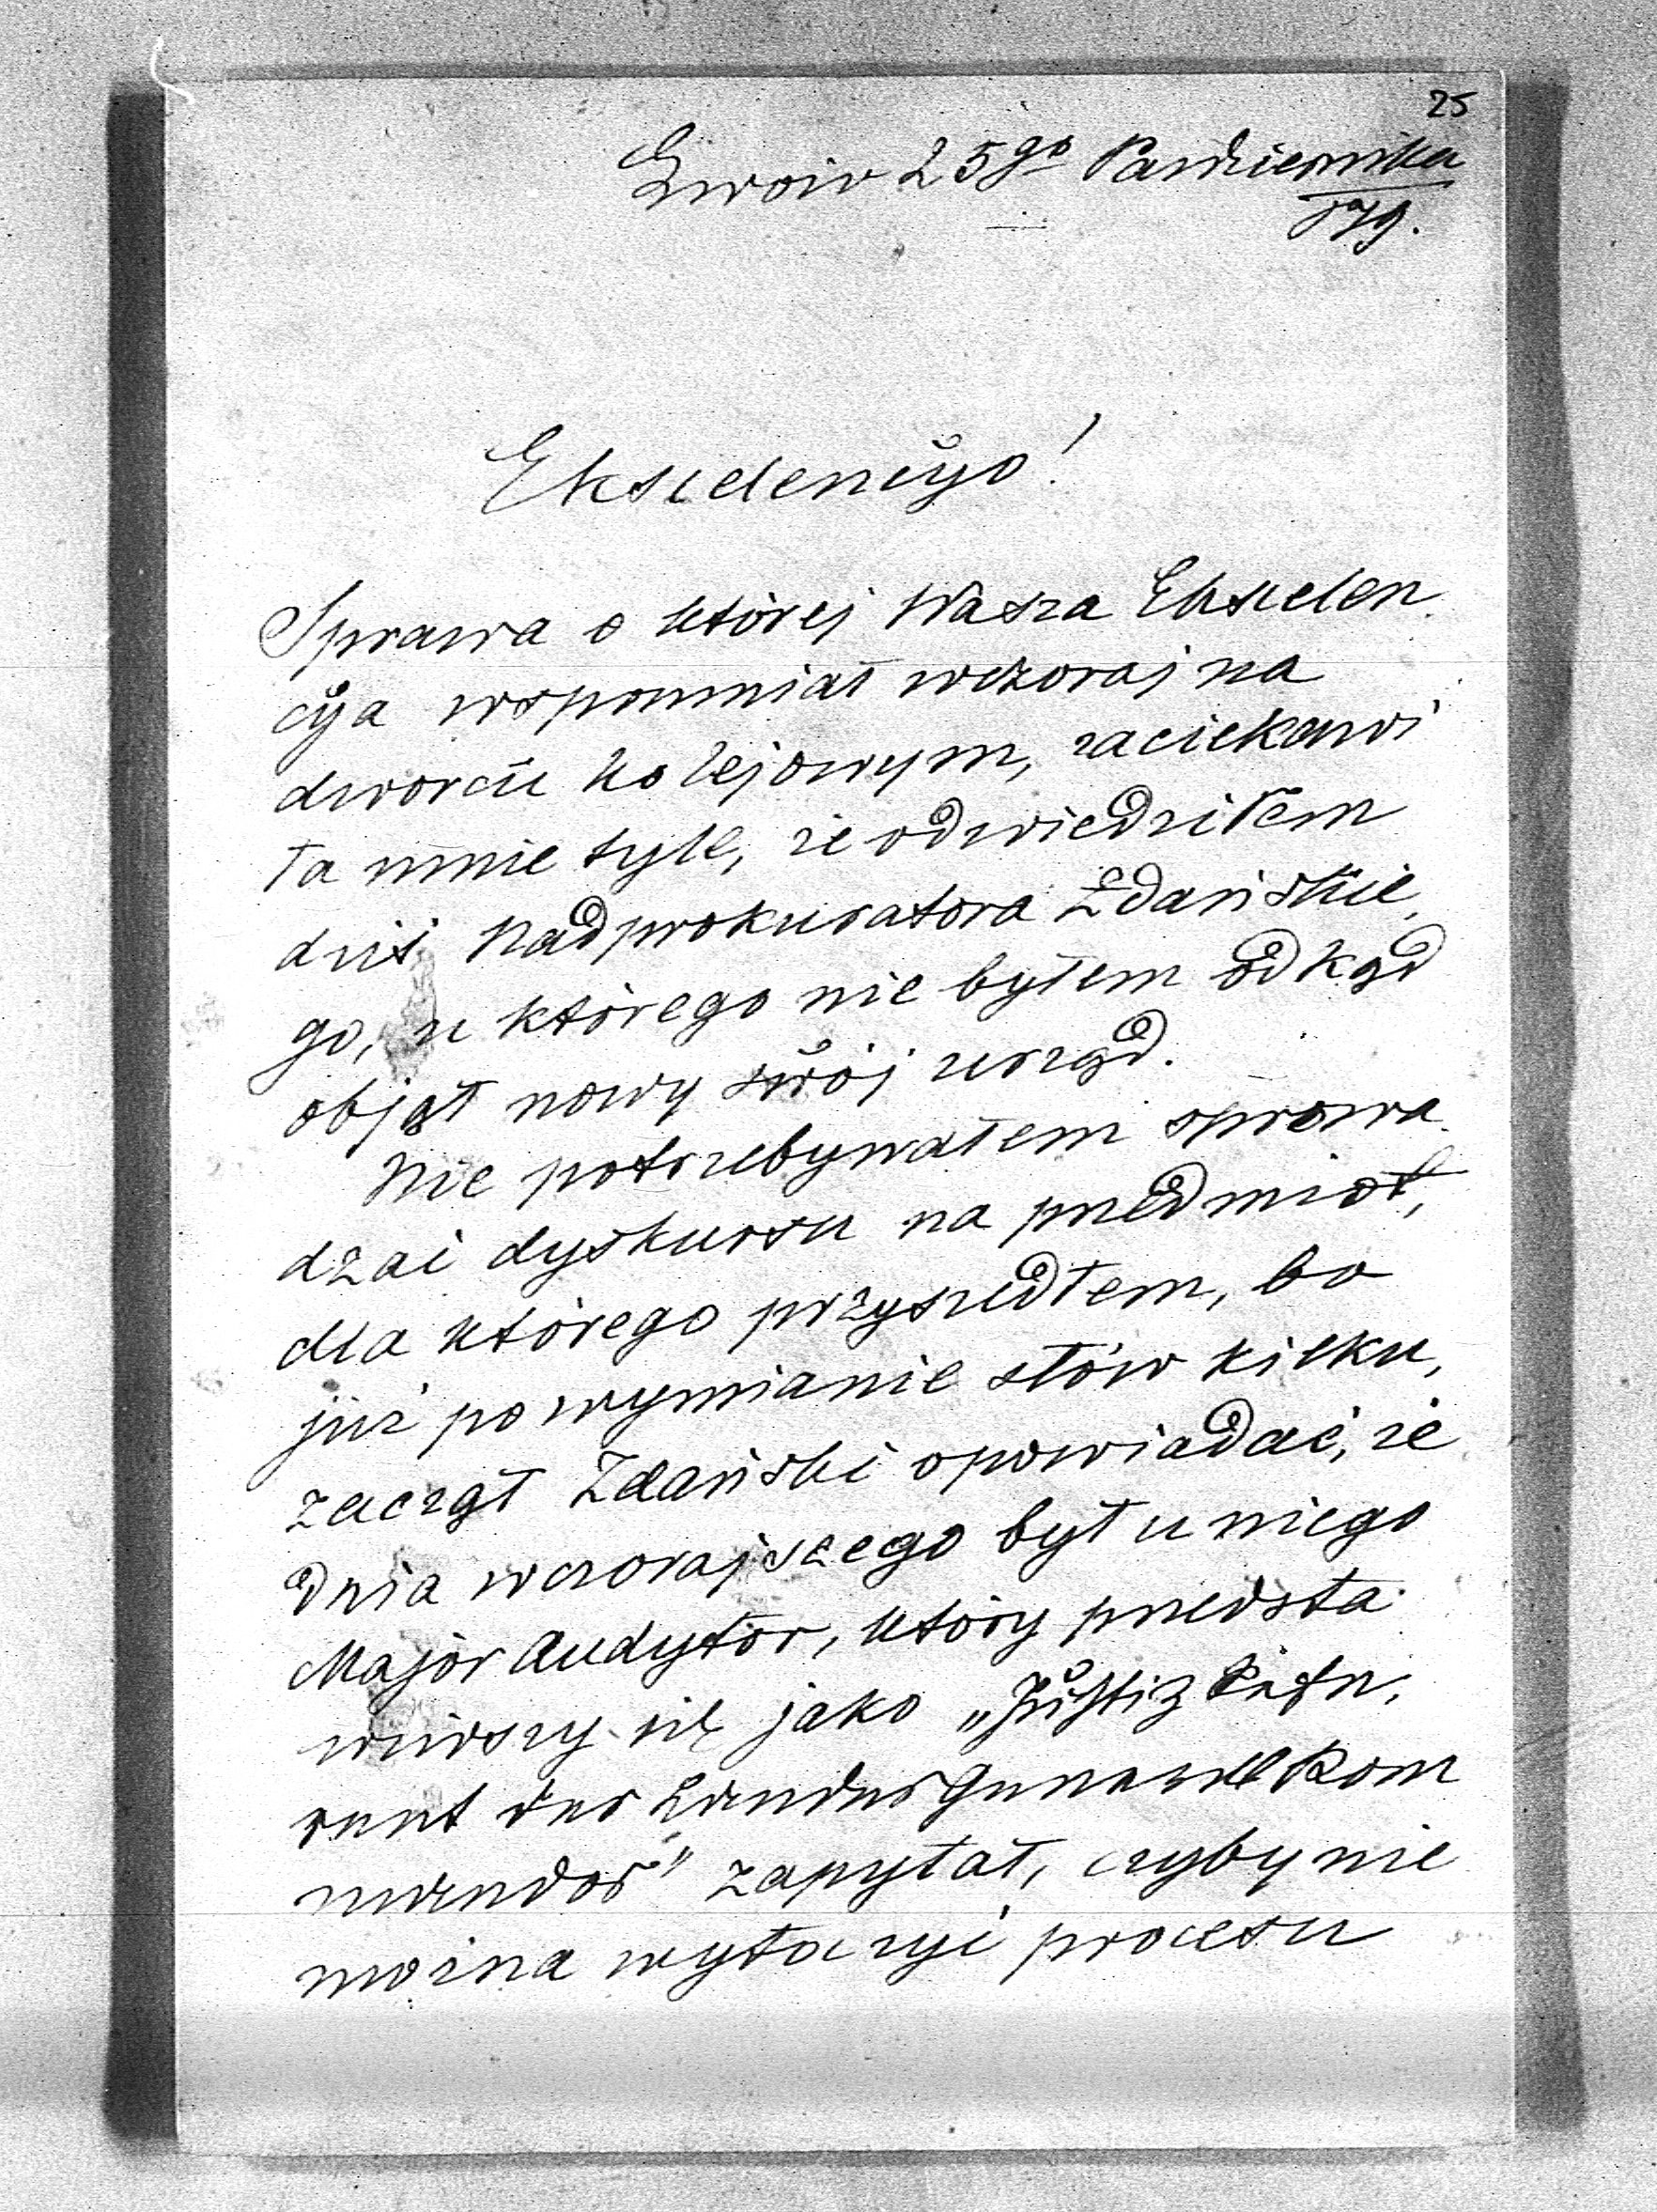 25
Lwów 25go Października
879.
Ekscelencyo!
Sprawa o której Wasza Ekscelen
cya wspomniał wczoraj na
dworcu kolejowym, zaciekawi
ła mnie tyle, że odwiedziłem
dziś Nadprokuratora Zdańskie
go, u którego nie byłem odkąd
objął nowy swój urząd.
Nie potrzebywałem sprowa
dzać dyskursu na przedmiot,
dla którego przyszedłem, bo
już po wymianie słów kilku,
zaczął Zdański opowiadać, że
dnia wczorajszego był u niego
Major Audytor, który przedsta
wiwszy się jako „Justiz Refe
rent des Landes General Kom
mandos" zapytał, czyby nie
można wytoczyć procesu